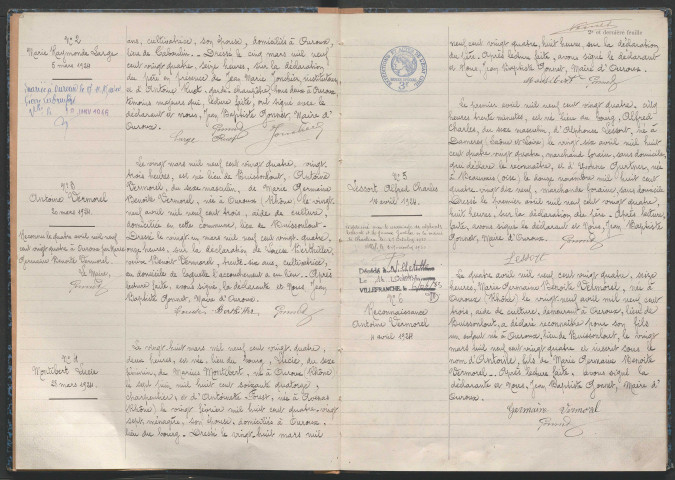 N° 2
Marie Raymonde Large
5 mars 1924
ans, cultivatrice, son épouse, domiciliés à Ouroux,
lieu de . Dressé le cinq mars mil neuf
cent vingt quatre, seize heures, sur la déclaration
du père en présence de Jean Marie , instituteur,
et d'Antoine , tous deux à Ouroux,
témoins majeurs qui, lecture faite, ont signé avec le
déclarant et nous, Jean Baptiste Bonnet, Maire d'
Ouroux.
Large
N° 3
Antoine Vermorel
20 mars 1924
Reconnu le quatre avril mil neuf
cent vingt quatre à Ouroux par Marie
Germaine Benoîte Vermorel.
Le Maire,
Le vingt mars mil neuf cent vingt quatre, vingt
trois heures, est né lieu de Buissonlout, Antoine
Vermorel, du sexe masculin, de Marie Germaine
Benoîte Vermorel, née à Ouroux (Rhône), le vingt
neuf avril mil neuf cent trois, aide de culture,
domiciliée en cette commune, lieu de Buissonlout.
Dressé le vingt un mars mil neuf cent vingt quatre,
onze heures, sur la déclaration de
veuve Benoît Vermorel, trente-six ans, cultivatrice,
au domicile de laquelle l'accouchement a eu lieu. Après
lecture faite, avons signé, la déclarante et Nous, Jean
Baptiste Bonnet, Maire d'Ouroux.
N° 4
Montibert Lucie
28 mars 1924
Le vingt huit mars mil neuf cent vingt quatre,
deux heures, est née, lieu du bourg, Lucie, du sexe
féminin, de Marius Montibert, né à Ouroux (Rhône)
le sept juin mil huit cent soixante quatorze,
charpentier, et d'Antoinette , née à Avenas
(Rhône), le vingt février mil huit cent quatre-vingt
sept, ménagère, son épouse, domiciliés à Ouroux,
lieu du bourg. Dressé le vingt-huit mars mil
2e et dernière feuille
neuf cent vingt quatre, huit heures, sur la déclaration
du père. Après lecture faite, avons signé le déclarant
et Nous, Jean Baptiste Bonnet, Maire d'Ouroux.
N° 5
Lessort Alfred Charles
1er avril 1924
Le premier avril mil neuf cent vingt quatre, cinq
heures trente minutes, est né lieu du bourg, Alfred
Charles, du sexe masculin, d'Alphonse Lessort, né à
(Saône et Loire), le vingt six avril mil huit
cent quatre vingt quatre, marchand forain, sans domicile,
qui déclare le reconnaître, et d' , née
à Beauvais (Oise), le douze novembre mil huit cent
quatre vingt dix neuf, marchande foraine, sans domicile.
Dressé le premier avril mil neuf cent vingt quatre,
huit heures, sur la déclaration du père. Après lecture
faite, avons signé le déclarant et Nous, Jean Baptiste
Bonnet, Maire d'Ouroux.
Lessort
Le 14 octobre
VILLEFRANCHE
N° 6
Reconnaissance
Antoine Vermorel
4 avril 1924
Le quatre avril mil neuf cent vingt quatre, seize
heures, Marie Germaine Benoîte Vermorel, née à
Ouroux (Rhône) le vingt neuf avril mil neuf cent
trois, aide de culture, demeurant à Ouroux, lieu de
Buissonlout, a déclaré reconnaître pour son fils
un enfant né à Ouroux, lieu de Buissonlout, le vingt
mars mil neuf cent vingt quatre et inscrit sous le
nom d'Antoine, fils de Marie Germaine Benoîte
Vermorel. Après lecture faite, avons signé la
déclarante et Nous, Jean Baptiste Bonnet, Maire d'
Ouroux.
Germaine Vermorel